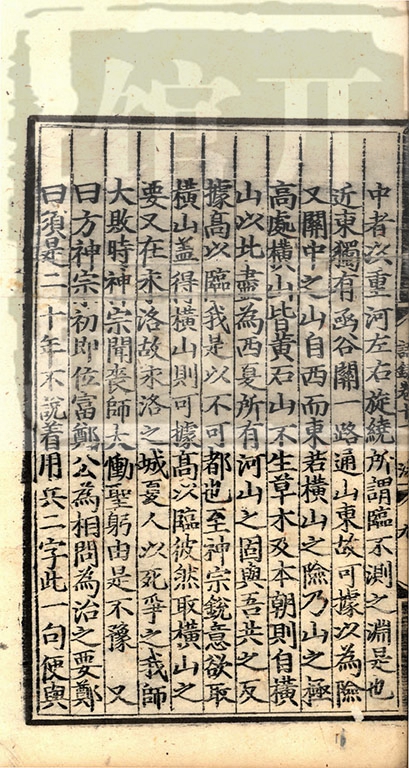 中者以重河左右旋繞所謂臨不測之淵是也
近東獨有函谷關一路通山東故可據以為險
又關中之山自西而東若橫山之險乃山之極
高處橫山皆黃石山不生草木及本朝則自橫
山以北盡為西夏所有河山之固與吾共之反
據高以臨我是以不可都也至神宗銳意欲取
橫山盖得橫山則可據高以臨彼然取橫山之
要又在永洛故永洛之城夏人以死爭之我師
大敗時神宗聞喪師大慟聖躬由是不豫 又
曰方神宗初即位富鄭公為相問為治之要鄭
曰須是二十年不說着用兵二字此一句便與